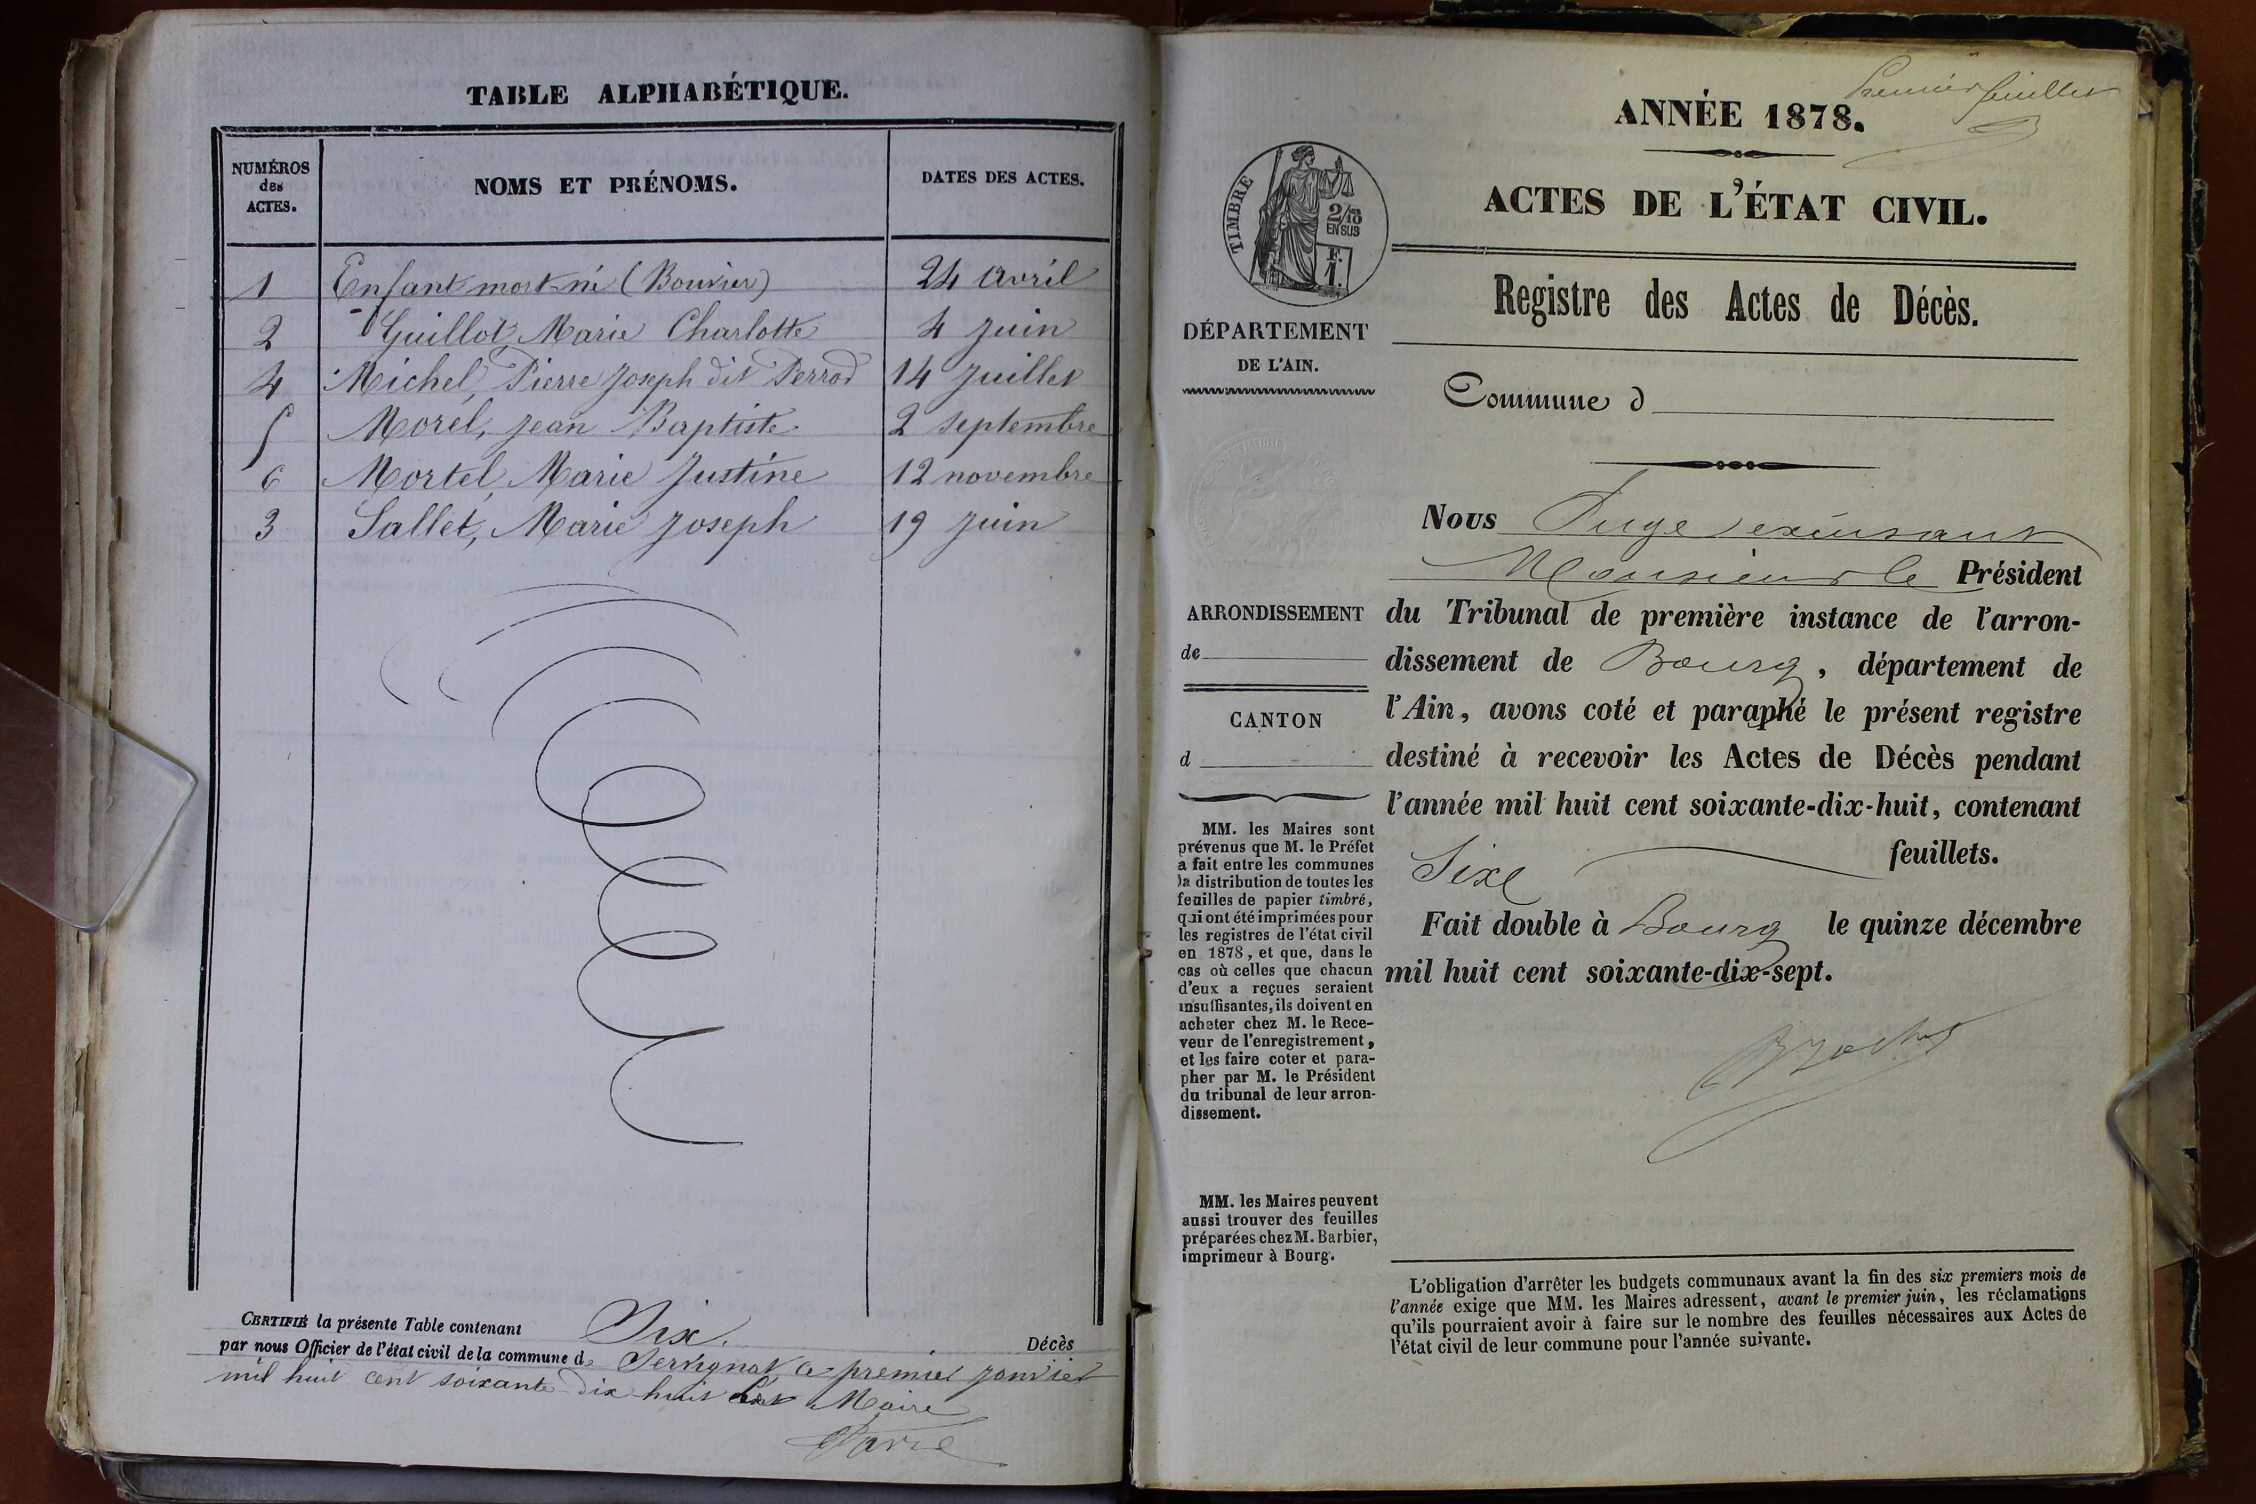 TABLE ALPHABÉTIQUE.
NUMÉROS des ACTES.
NOMS ET PRÉNOMS.
DATES DES ACTES.
1 Enfant mort-né (Bouvier) 24 avril
2 Guillot, Marie Charlotte 4 juin
4 Michel, Pierre Joseph dit Perrod 14 juillet
5 Morel, Jean Baptiste 2 septembre
6 Mortel, Marie Justine 12 novembre
3 Sallet, Marie Joseph 19 juin
CERTIFIÉ la présente Table contenant Six. Décès
par nous Officier de l'état civil de la commune de Servignat, ce premier janvier
mil huit cent soixante-dix huit Le Maire
Premier feuillet
ANNÉE 1878.
ACTES DE L'ÉTAT CIVIL.
TIMBRE
2/10 EN SUS
F. 1.
Registre des Actes de Décès.
DÉPARTEMENT
DE L'AIN.
Commune d
Nous Juge excusant
Monsieur le Président
du Tribunal de première instance de l'arron-
dissement de Bourg, département de
l'Ain, avons coté et paraphé le présent registre
destiné à recevoir les Actes de Décès pendant
l'année mil huit cent soixante-dix-huit, contenant
Sixe feuillets.
Fait double à Bourg le quinze décembre
mil huit cent soixante-dix-sept.
ARRONDISSEMENT
de
CANTON
d
MM. les Maires sont
prévenus que M. le Préfet
a fait entre les communes
la distribution de toutes les
feuilles de papier timbré,
qui ont été imprimées pour
les registres de l'état civil
en 1878, et que, dans le
cas où celles que chacun
d'eux a reçues seraient
insuffisantes, ils doivent en
acheter chez M. le Rece-
veur de l'enregistrement,
et les faire coter et para-
pher par M. le Président
du tribunal de leur arron-
dissement.
MM. les Maires peuvent
aussi trouver des feuilles
préparées chez M. Barbier,
imprimeur à Bourg.
L'obligation d'arrêter les budgets communaux avant la fin des six premiers mois de
l'année exige que MM. les Maires adressent, avant le premier juin, les réclamations
qu'ils pourraient avoir à faire sur le nombre des feuilles nécessaires aux Actes de
l'état civil de leur commune pour l'année suivante.